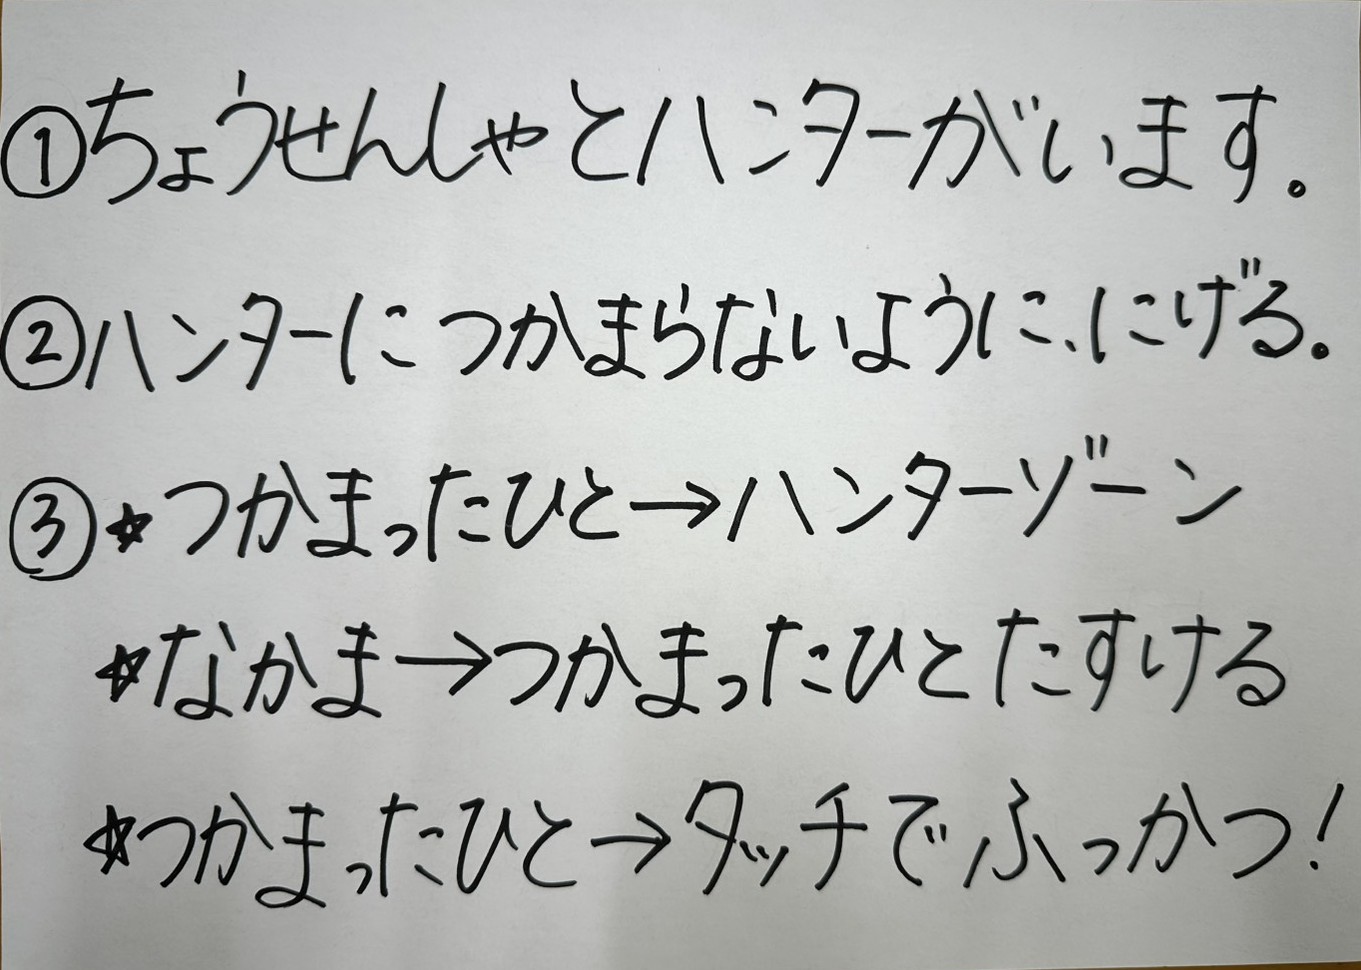 ①ちょうせんしゃとハンターがいます。
②ハンターにつかまらないように、にげる。
③☆つかまったひと→ハンターゾーン
☆なかま→つかまったひとたすける
☆つかまったひと→タッチでふっかつ!